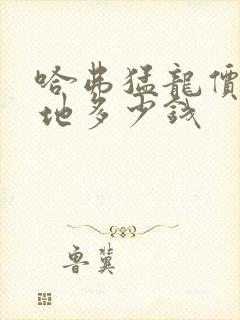 哈弗猛龍價
地多少錢
魯冀